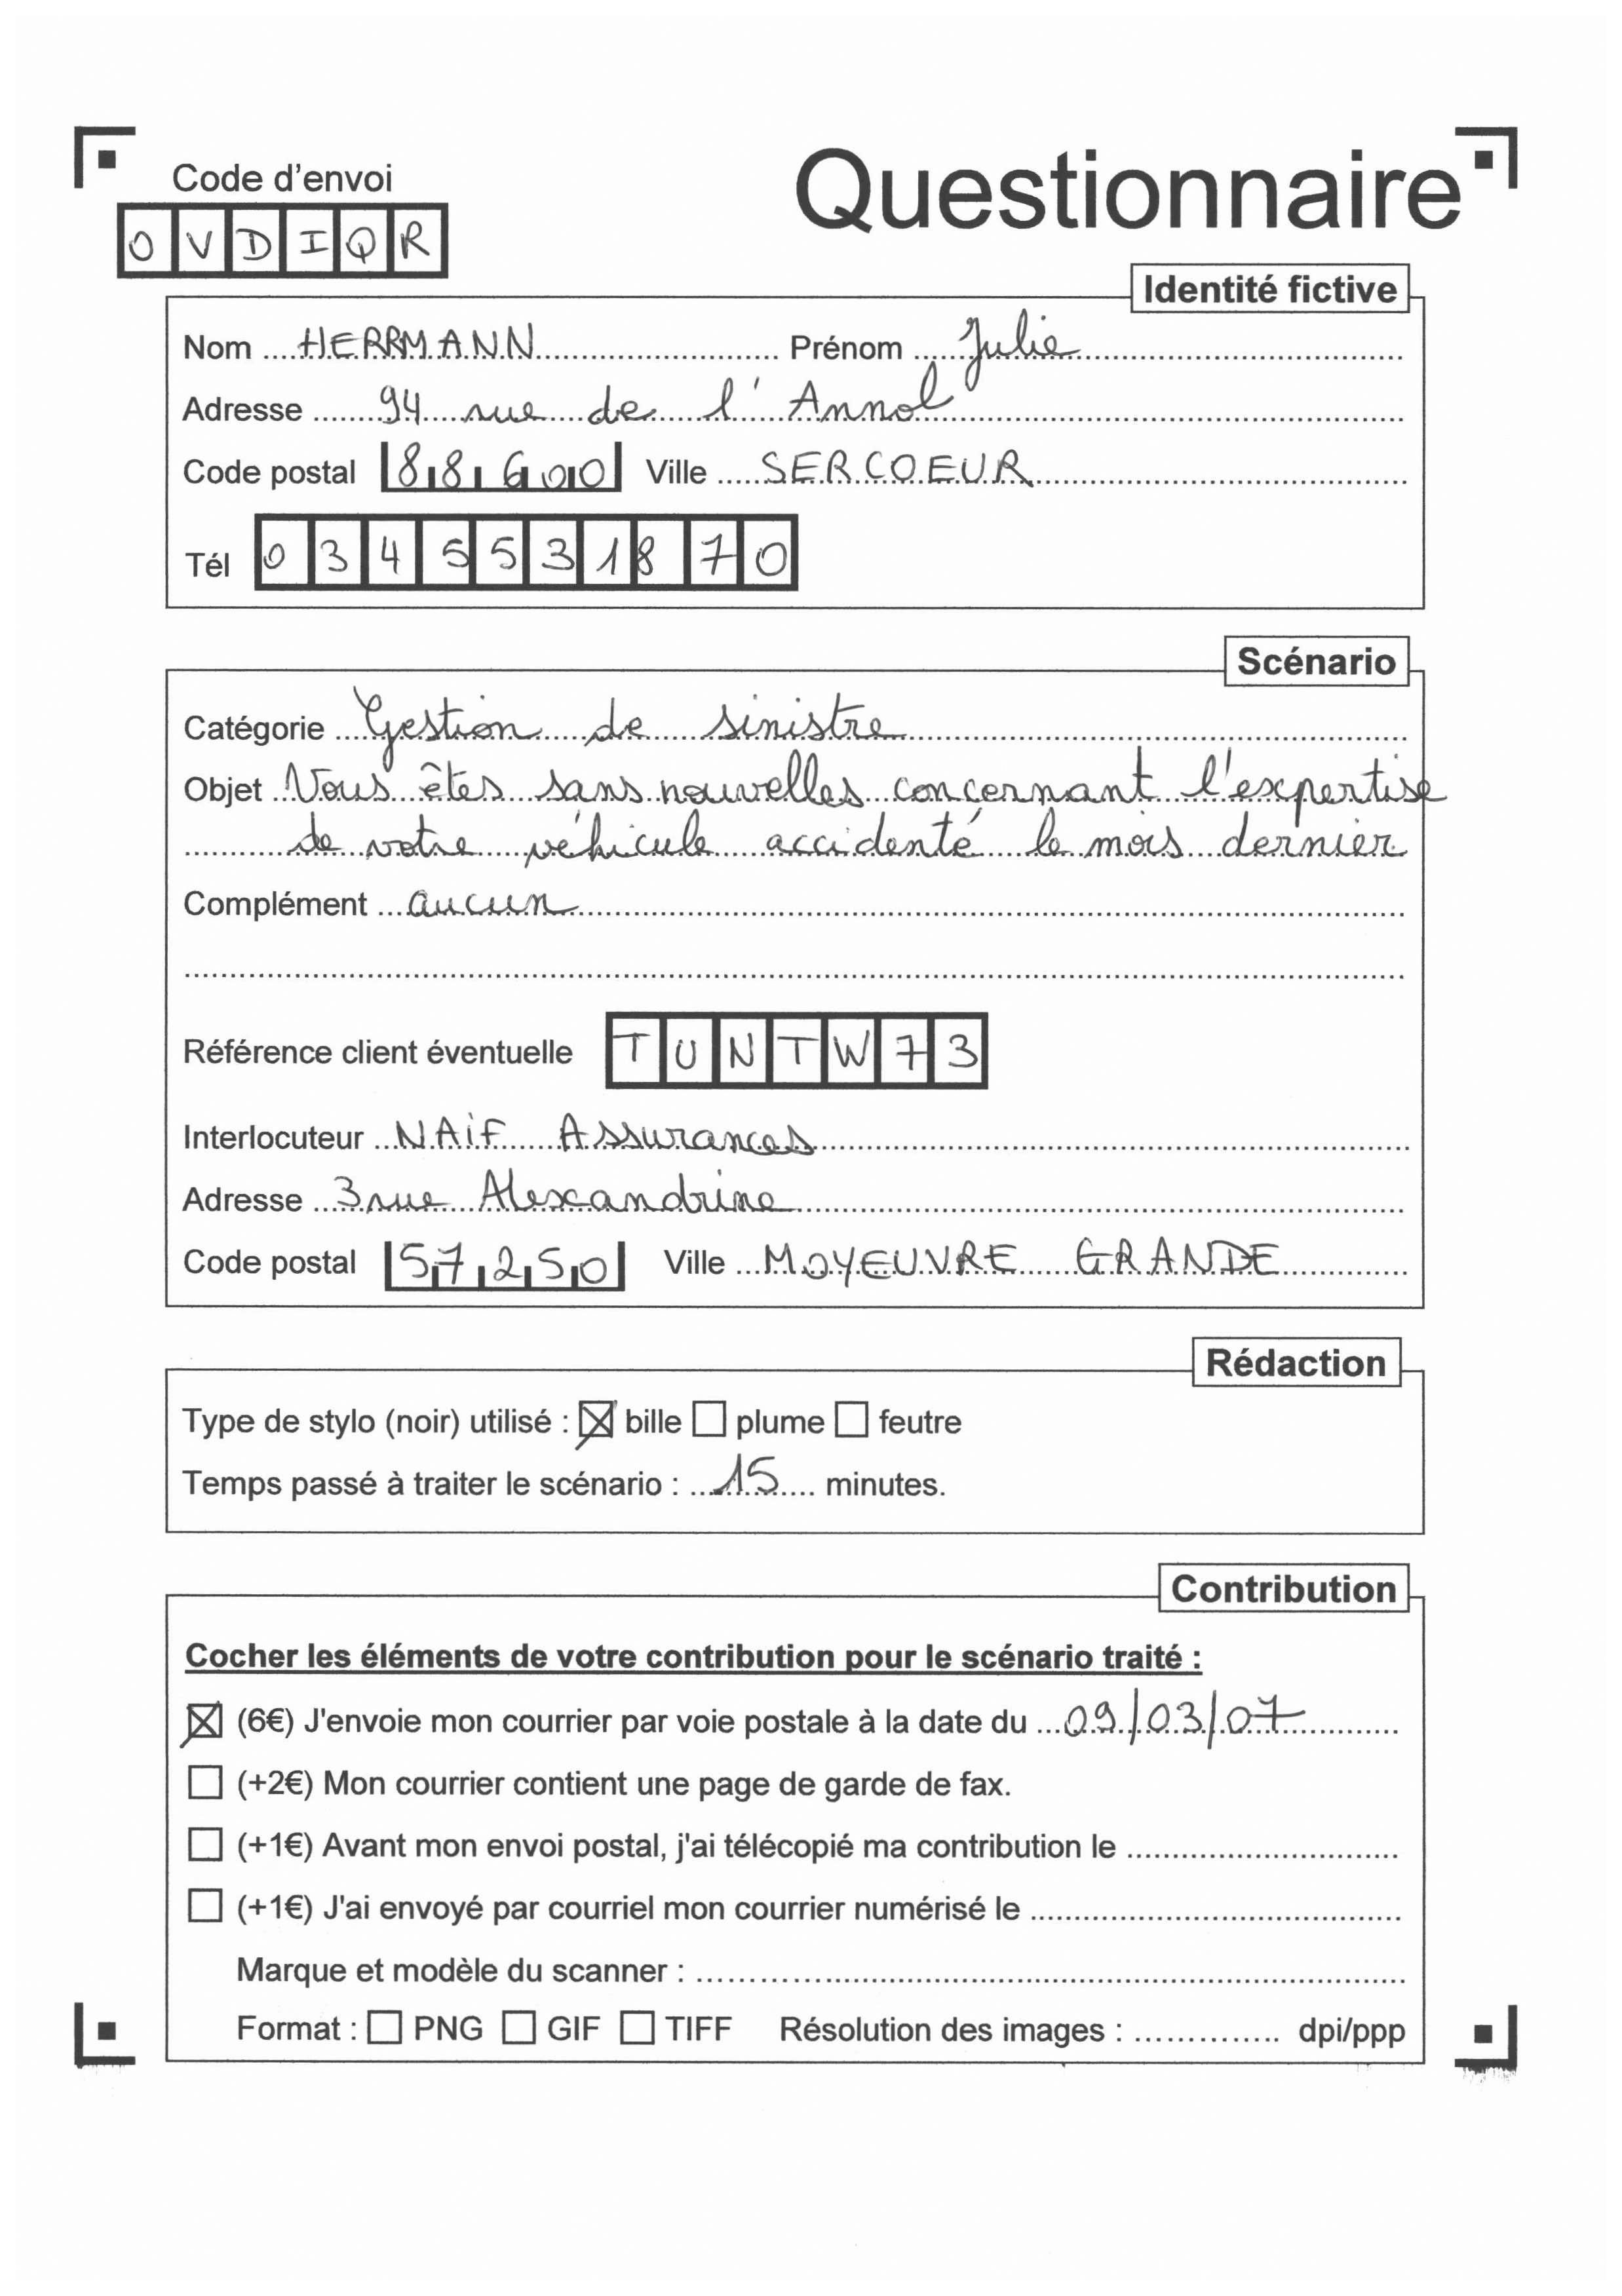 Code d'envoi
Questionnaire
OVDIQR
Identité fictive
Nom HERRMANN Prénom Julie
Adresse 94 rue de l'Annol
Code postal 88600 Ville SERCOEUR
Tél 0345531870
Scénario
Catégorie Gestion de sinistre
Objet Vous êtes sans nouvelles concernant l'expertise
de votre véhicule accidenté le mois dernier.
Complément aucun
Référence client éventuelle TUNTW73
Interlocuteur NAiF Assurances
Adresse 3 rue Alexandrine
Code postal 57250 Ville MOYEUVRE GRANDE
Rédaction
Type de stylo (noir) utilisé : ☒ bille ☐ plume ☐ feutre
Temps passé à traiter le scénario : 15 minutes.
Contribution
Cocher les éléments de votre contribution pour le scénario traité :
☒ (6€) J'envoie mon courrier par voie postale à la date du 09/03/07
☐ (+2€) Mon courrier contient une page de garde de fax.
☐ (+1€) Avant mon envoi postal, j'ai télécopié ma contribution le
☐ (+1€) J'ai envoyé par courriel mon courrier numérisé le
Marque et modèle du scanner :
Format : ☐ PNG ☐ GIF ☐ TIFF Résolution des images : dpi/ppp